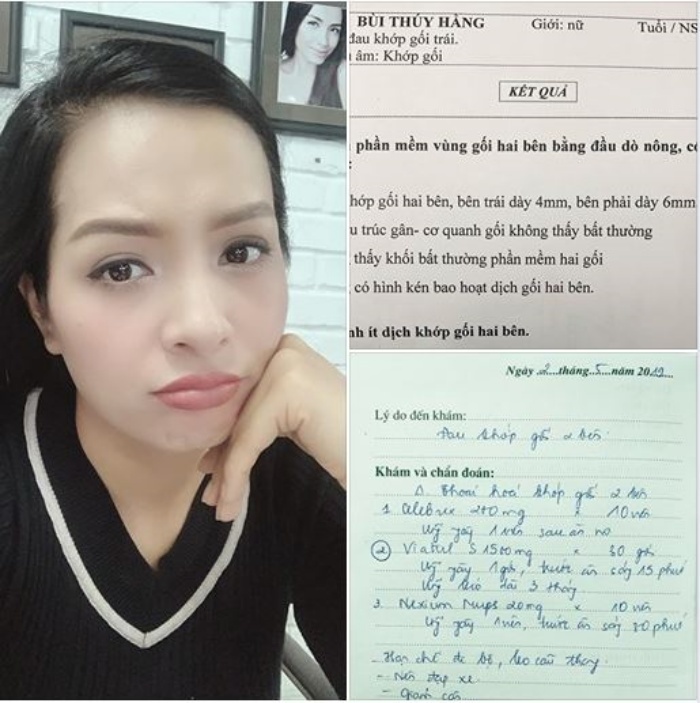 BÙI THÚY HẰNG Giới: nữ Tuổi / NS
đau khớp gối trái.
âm: Khớp gối
KẾT QUẢ
phần mềm vùng gối hai bên bằng đầu dò nông, có
:
hớp gối hai bên, bên trái dày 4mm, bên phải dày 6mm
u trúc gân- cơ quanh gối không thấy bất thường
thấy khối bất thường phần mềm hai gối
có hình kén bao hoạt dịch gối hai bên.
nh ít dịch khớp gối hai bên.
Ngày 2 tháng 5 năm 2019
Lý do đến khám:
Đau khớp gối 2 bên
Khám và chẩn đoán:
Δ. Thoái hoá khớp gối 2 bên
1. Celebrex 200mg x 10 viên
Uống ngày 1 viên sau ăn no
2 Viartril S 1500mg x 30 gói
Uống ngày 1 gói, trước ăn sáng 15 phút
Uống kéo dài 3 tháng
3. Nexium Mups 20mg x 10 viên
Uống ngày 1 viên, trước ăn sáng 30 phút
Hạn chế đi bộ, leo cầu thang.
- Nên đạp xe
- Giảm cân